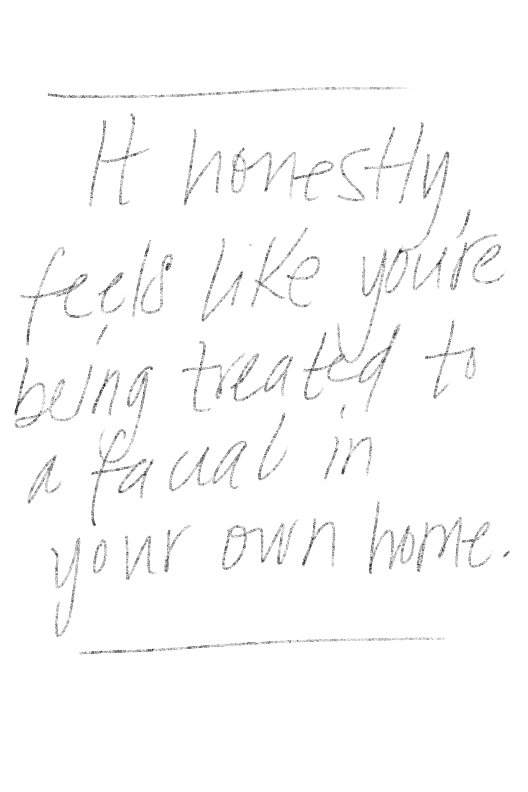 It honestly
feels like you're
being treated to
a facial in
your own home.